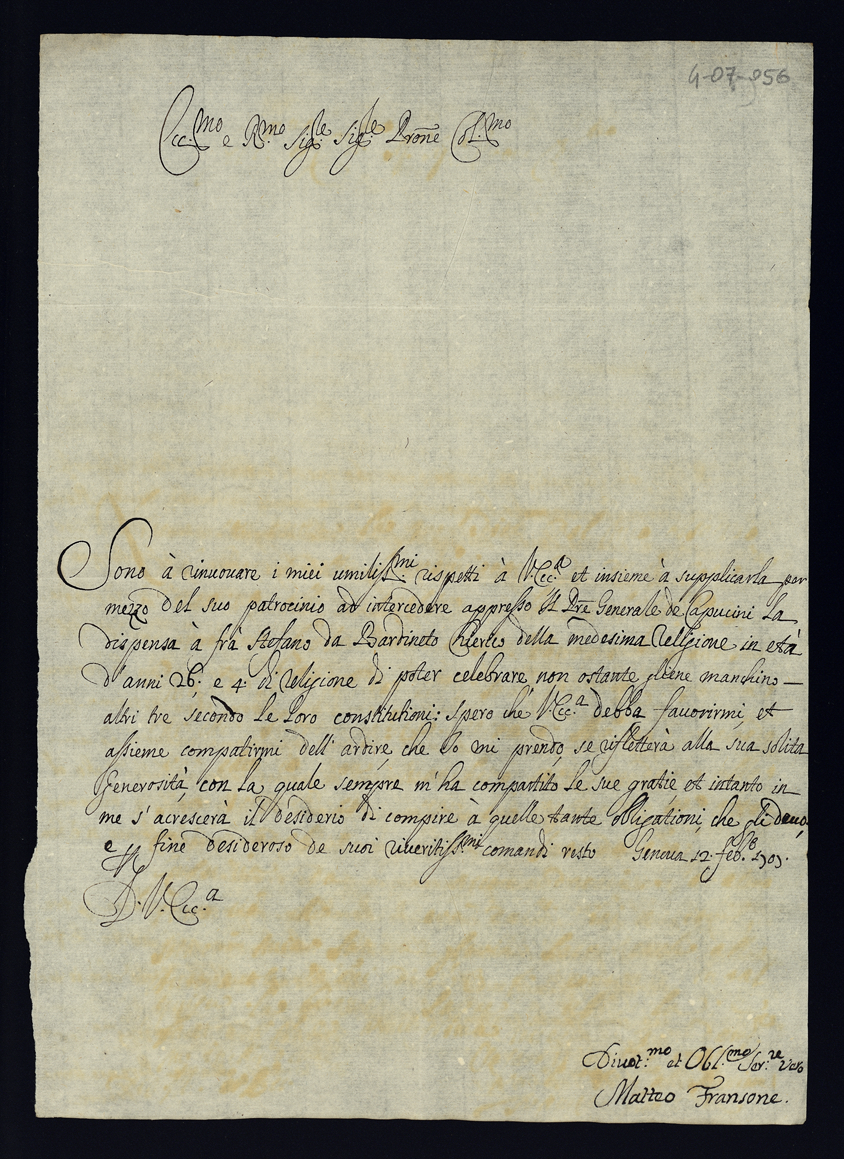 4-07-956
Ecc.mo e R.mo Sig.re Sig.re Prone Col.mo
Sono à rinuouare i miei umiliss.mi rispetti à V.Ecc.a et insieme à supplicarla per
mezzo del suo patrocinio ad intercedere appresso Il Pre Generale de Capucini La
dispensa à frà Stefano da Bardineto Chierico della medesima Religione in età
d'anni 26. e 4. di Religione di poter celebrare non ostante gliene manchino
altri tre secondo le Loro constitutioni: spero che V.Ecc.a debba fauorirmi, et
assieme compatirmi dell'ardire che Io mi prendo, se rifletterà alla sua solita
Generosità, con la quale sempre m'ha compartito le sue gratie, et intanto in
me s'acrescerà il desiderio di compire à quelle tante obligationi, che gli deuo,
e fine desideroso de suoi riueritiss.mi comandi resto Genoua 12. feb.
D. V. Ecc.a
Diuot.mo et Obl.mo Ser.re Vero
Matteo Fransone.